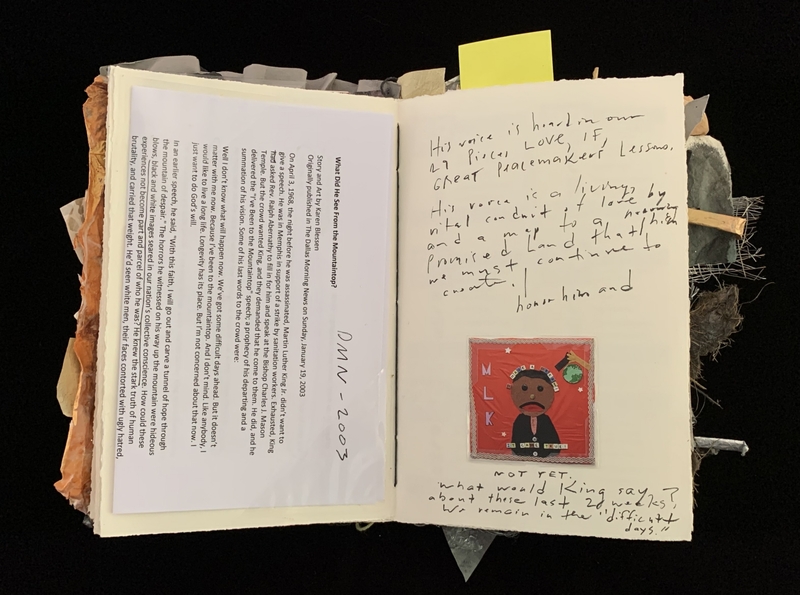 What Did He See From the Mountaintop?
Story and Art by Karen Blessen
Originally published in The Dallas Morning News on Sunday, January 19, 2003
DMN - 2003
On April 3, 1968, the night before he was assassinated, Martin Luther King Jr. didn't want to
give a speech. He was in Memphis in support of a strike by sanitation workers. Exhausted, King
had asked Rev. Ralph Abernathy to fill in for him and speak at the Bishop Charles J. Mason
Temple. But the crowd wanted King, and they demanded that he come to them. He did, and he
delivered the "I've Been to the Mountaintop" speech; a prophecy of his departing and a
summation of his vision. Some of his last words to the crowd were:
Well I don't know what will happen now. We've got some difficult days ahead. But it doesn't
matter with me now. Because I've been to the mountaintop. And I don't mind. Like anybody, I
would like to live a long life. Longevity has its place. But I'm not concerned about that now. I
just want to do God's will.
In an earlier speech, he said, "With this faith, I will go out and carve a tunnel of hope through
the mountain of despair." The horrors he witnessed on his way up the mountain were hideous
blows, black and white images seared in our nation's collective conscience. How could these
experiences not become part and parcel of who he was? He knew the stark truth of human
brutality, and carried that weight. He'd seen white men, their faces contorted with ugly hatred,
His voice is heard in our
29 Pieces LOVE, If,
Great Peacemakers Lessons.
His voice is a living,
vital conduit of love
and a map to a
promised Land that
we must continue to
honor him and
MLK
NOT YET.
What would King say?
about these last 20 weeks?
We remain in the "difficult
days."